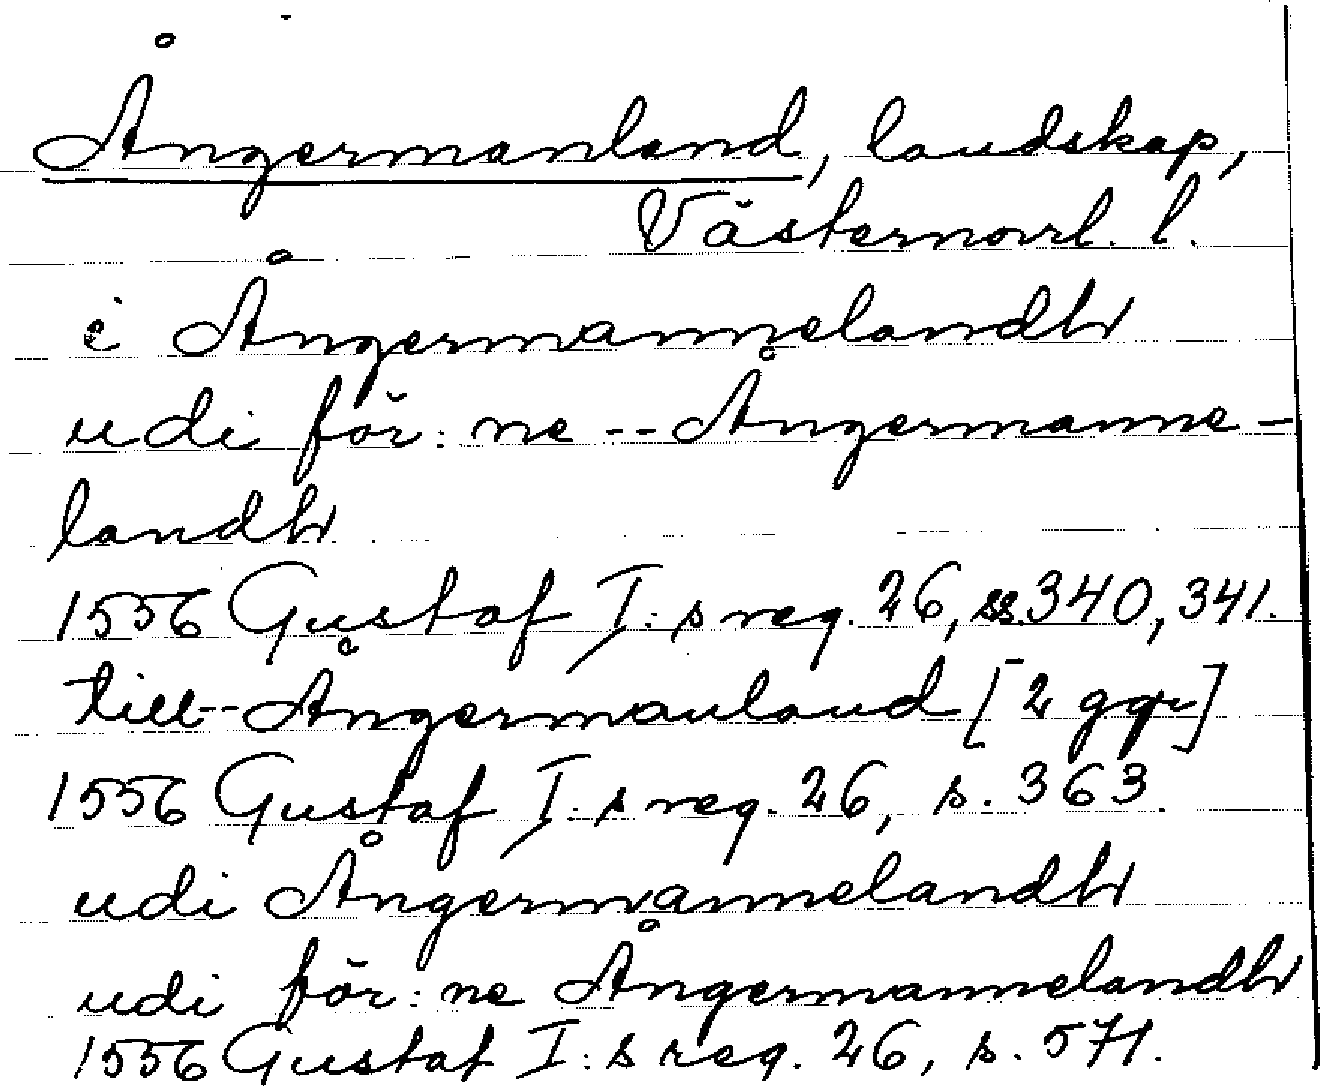 Ångermanland, landskap,
Västernorrl. l.
i Ångermannelandh
udi för: ne -- Ångermanne-
landh
1556 Gustaf I:s reg. 26, ss. 340, 341.
till -- Ångermanland [2 ggr]
1556 Gustaf I:s reg. 26, s. 363.
udi Ångermannelandh
udi för: ne Ångermannelandh
1556 Gustaf I:s reg. 26, s. 571.